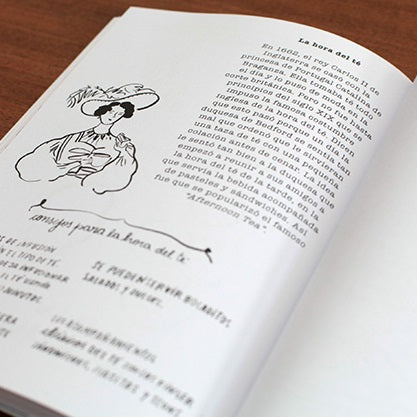 La hora del té
En 1662, el rey Carlos II de
Inglaterra se casó con la
princesa de Portugal Catalina de
Braganza. Ella tomaba té todo
el día y lo puso de moda en la
corte británica. Pero no fue hasta
principios del siglo XIX que se
impuso la famosa costumbre
inglesa de la hora del té. Dicen
que esto pasó porque un día la
duquesa de Bedford se sentía tan
mal que ordenó que le sirvieran
una taza de té con una pequeña
colación antes de la cena. La idea
le sentó tan bien a la duquesa que
empezó a reunir a sus amigos a
la hora del té de la tarde, en la
que servía la bebida acompañada
de pasteles y sándwiches. Así
fue que se popularizó el famoso
"Afternoon Tea".
consejos para la hora del té
DE INFUSIÓN
EL TIPO DE TÉ.
MINUTOS
SE PUEDEN SERVIR BOCADITOS
SALADOS Y DULCES.